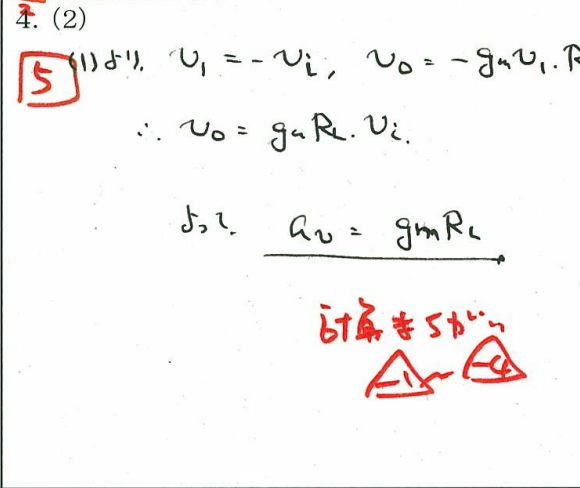 4. (2)
5 (1)より、 v₁ = -vᵢ, v₀ = -gₘv₁・R
∴ v₀ = gₘR_L・vᵢ.
よって、 aᵥ = gₘR_L
計算まちがい
-1 ~ -4